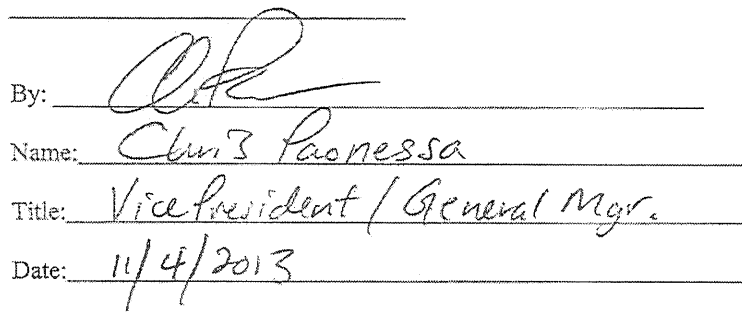 By:
Name: Chris Paonessa
Title: Vice President / General Mgr.
Date: 11/4/2013